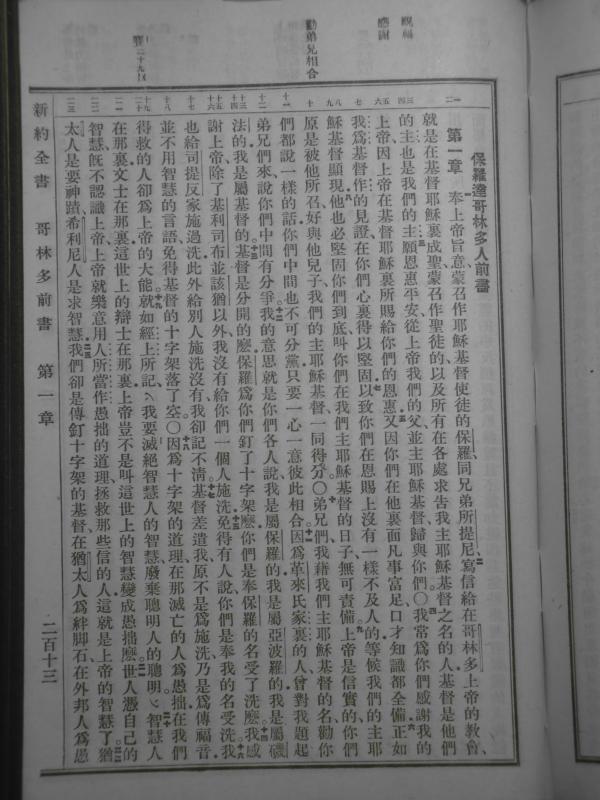 祝福
感謝
勸弟兄相合
賽二十九
保羅達哥林多人前書
第一章 奉上帝旨意蒙召作耶穌基督使徒的保羅同兄弟所提尼寫信給在哥林多上帝的教會、
就是在基督耶穌裏成聖蒙召作聖徒的以及所有在各處求告我主耶穌基督之名的人基督是他們
的主也是我們的主願恩惠平安從上帝我們的父並主耶穌基督歸與你們〇我常爲你們感謝我的
上帝因上帝在基督耶穌裏所賜給你們的恩惠又因你們在他裏面凡事富足口才知識都全備正如
我爲基督作的見證在你們心裏得以堅固以致你們在恩賜上沒有一樣不及人的等候我們的主耶
穌基督顯現他也必堅固你們到底叫你們在我們主耶穌基督的日子無可責備上帝是信實的你們
原是被他所召好與他兒子我們的主耶穌基督一同得分〇弟兄們我藉我們主耶穌基督的名勸你
們都說一樣的話你們中間也不可分黨只要一心一意彼此相合因爲革來氏家裏的人曾對我題起
弟兄們來說你們中間有分爭我的意思就是你們各人說我是屬保羅的我是屬亞波羅的我是屬磯
法的我是屬基督的基督是分開的麽保羅爲你們釘了十字架麽你們是奉保羅的名受了洗麽我感
謝上帝除了基利司布並該猶以外我沒有給你們一個人施洗免得有人說你們是奉我的名受洗我
也給司提反家施過洗此外給別人施洗沒有我卻記不清基督差遣我原不是爲施洗乃是爲傳福音
並不用智慧的言語免得基督的十字架落了空〇因爲十字架的道理在那滅亡的人爲愚拙在我們
得救的人卻爲上帝的大能就如經上所記我要滅絕智慧人的智慧廢棄聰明人的聰明智慧人
在那裏文士在那裏這世上的辯士在那裏上帝豈不是叫這世上的智慧變成愚拙麽世人憑自己的
智慧旣不認識上帝上帝就樂意用人所當作愚拙的道理拯救那些信的人這就是上帝的智慧了猶
太人是要神蹟希利尼人是求智慧我們卻是傳釘十字架的基督在猶太人爲絆脚石在外邦人爲愚
新約全書 哥林多前書 第一章 二百十三